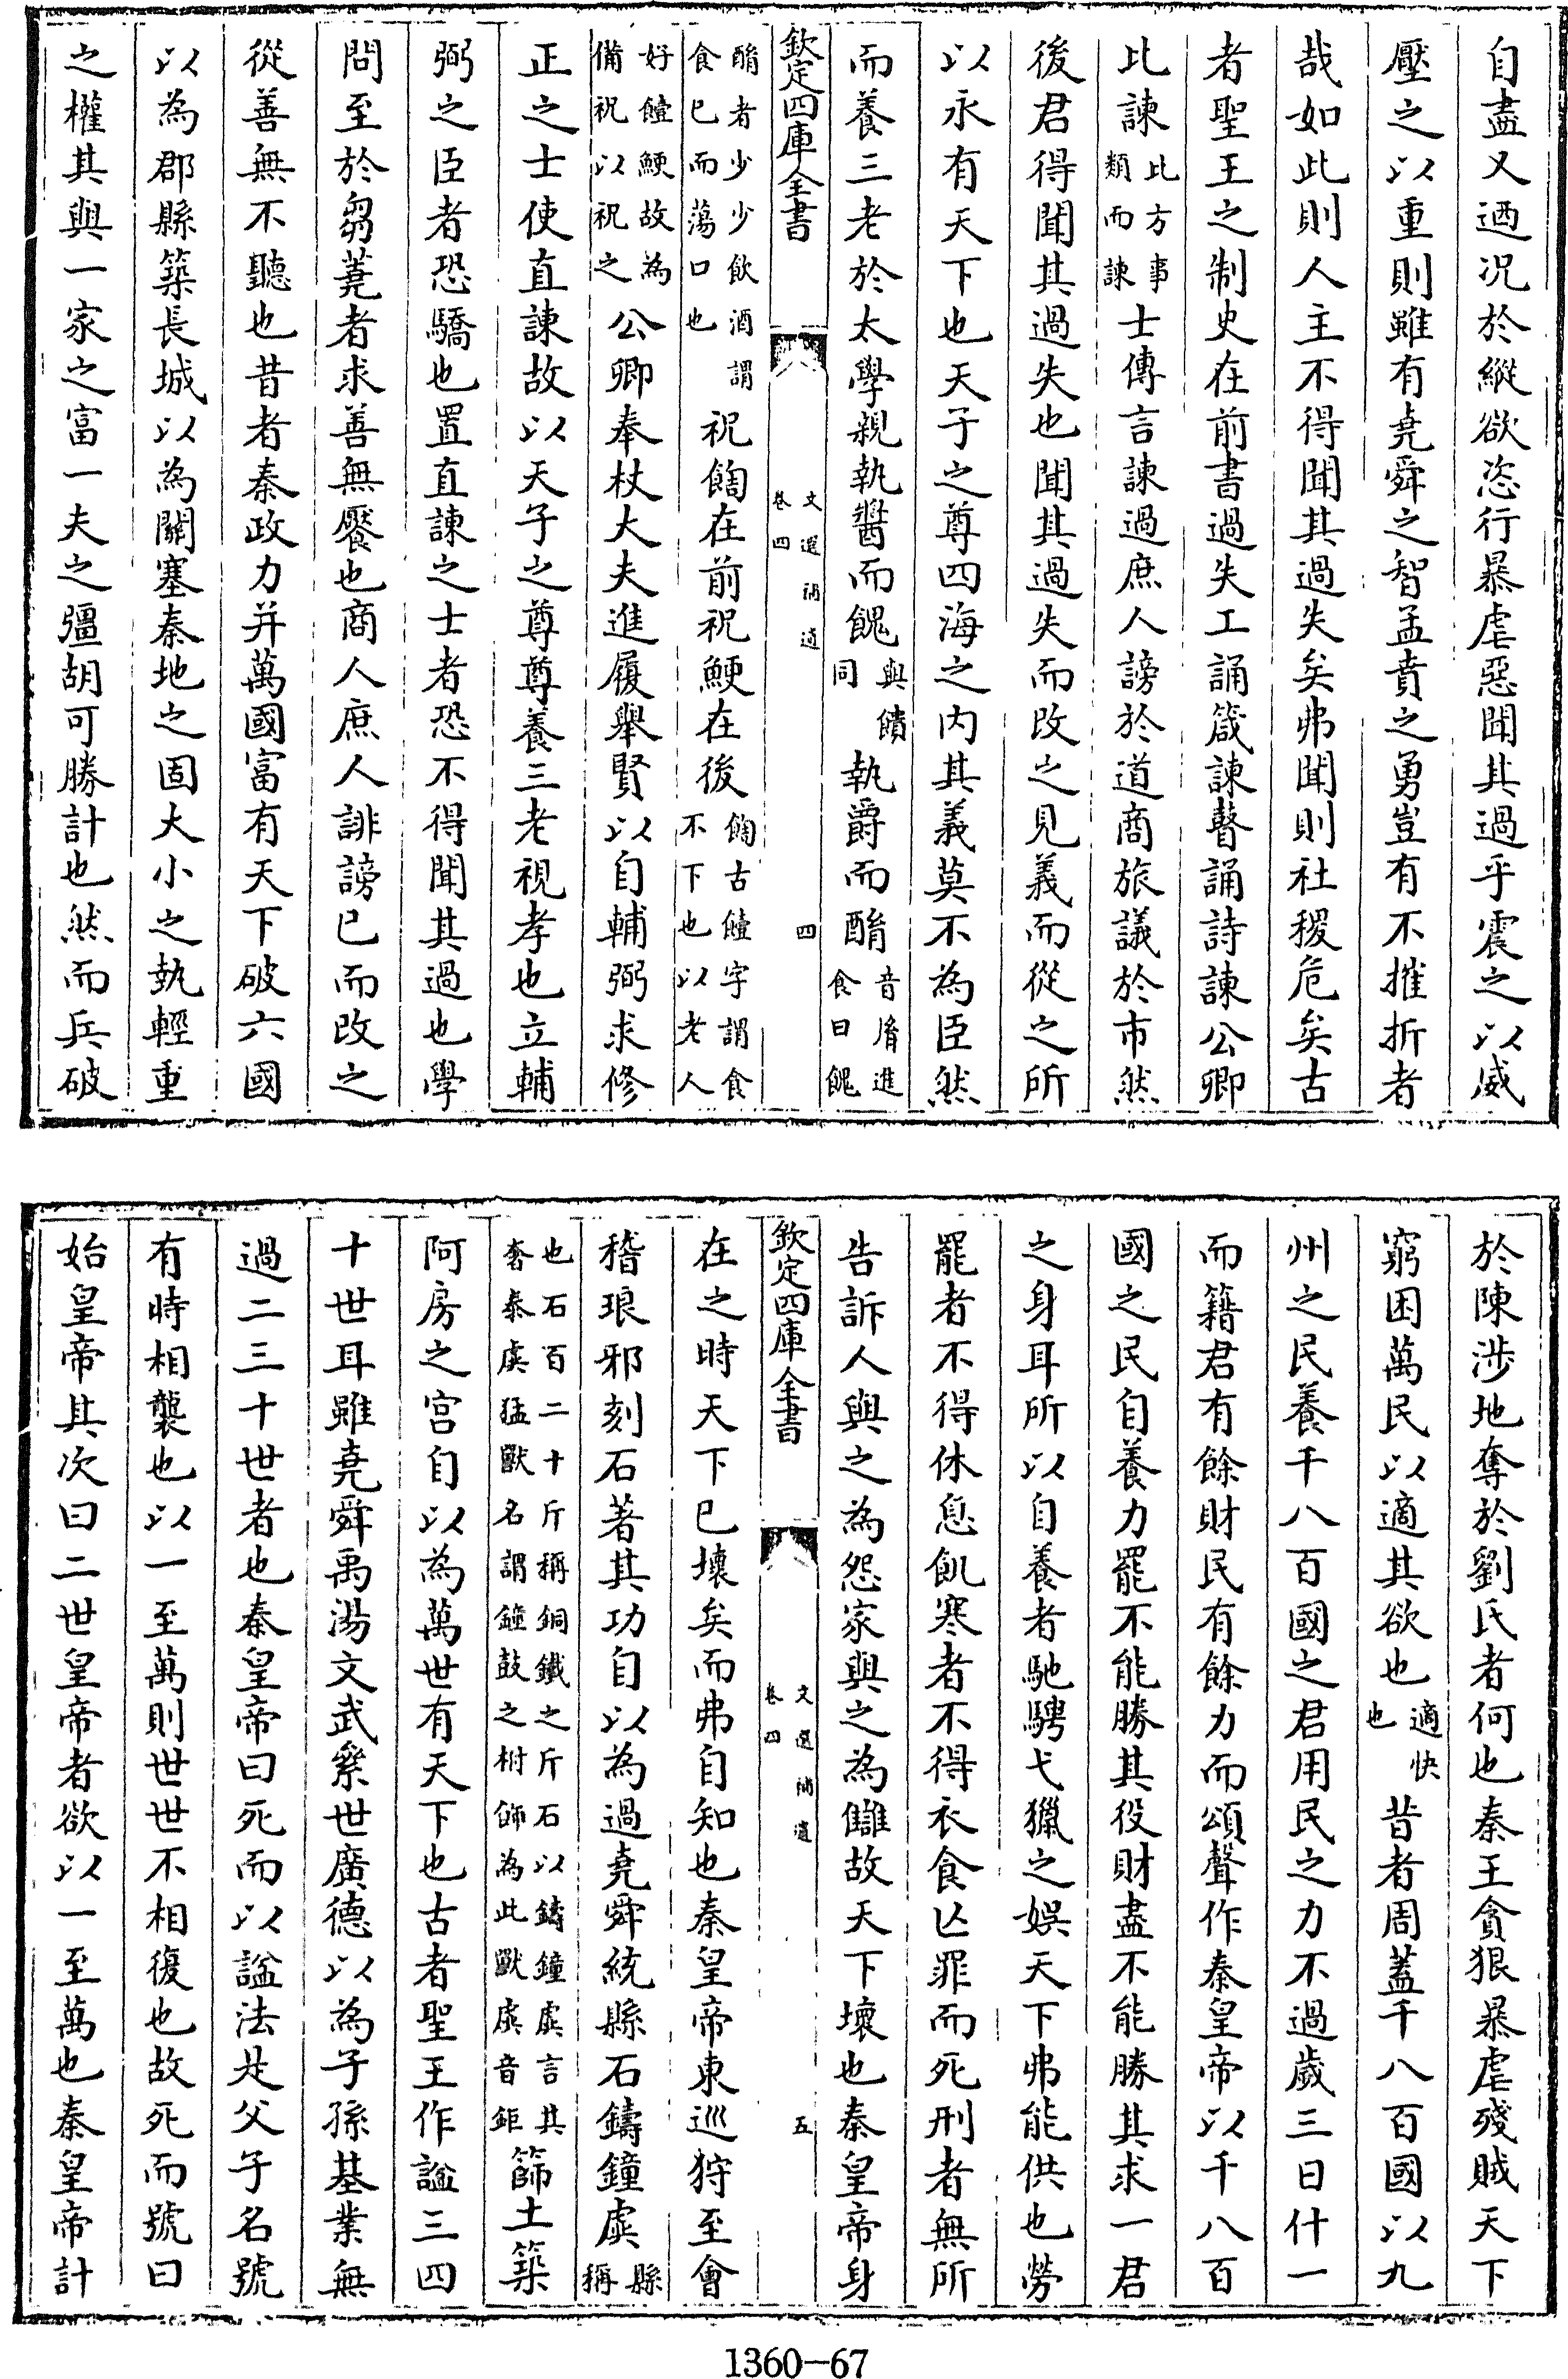 自盡又迺況於縱欲恣行暴虐惡聞其過乎震之以威
壓之以重則雖有堯舜之智孟賁之勇豈有不摧折者
哉如此則人主不得聞其過失矣弗聞則社稷危矣古
者聖王之制史在前書過失工誦箴諫瞽誦詩諫公卿
比諫比方事類而諫士傳言諫過庶人謗於道商旅議於市然
後君得聞其過失也聞其過失而改之見義而從之所
以永有天下也天子之尊四海之内其義莫不為臣然
而養三老於太學親執醬而餽與饋同執爵而酳音胤進食曰餽
欽定四庫全書
文選補遺
卷四
四
酳者少少飲酒謂食已而蕩口也祝餶在前祝鯁在後餶古饐字謂食不下也以老人
好饐鯁故為備祝以祝之公卿奉杖大夫進履舉賢以自輔弼求修
正之士使直諫故以天子之尊尊養三老視孝也立輔
弼之臣者恐驕也置直諫之士者恐不得聞其過也學
問至於芻蕘者求善無饜也商人庶人誹謗已而改之
從善無不聽也昔者秦政力并萬國富有天下破六國
以為郡縣築長城以為關塞秦地之固大小之埶輕重
之權其與一家之富一夫之彊胡可勝計也然而兵破
於陳涉地奪於劉氏者何也秦王貪狠暴虐殘賊天下
窮困萬民以適其欲也適快也昔者周蓋千八百國以九
州之民養千八百國之君用民之力不過歲三日什一
而籍君有餘財民有餘力而頌聲作秦皇帝以千八百
國之民自養力罷不能勝其役財盡不能勝其求一君
之身耳所以自養者馳騁弋獵之娱天下弗能供也勞
罷者不得休息飢寒者不得衣食亡罪而死刑者無所
告訴人與之為怨家與之為讎故天下壞也秦皇帝身
欽定四庫全書
文選補遺
卷四
五
在之時天下已壞矣而弗自知也秦皇帝東巡狩至會
稽琅邪刻石著其功自以為過堯舜統縣石鑄鐘虡縣稱
也石百二十斤稱銅鐵之斤石以鑄鐘虡言其奢泰虡猛獸名謂鐘鼓之柎飾為此獸虡音鉅篩土築
阿房之宫自以為萬世有天下也古者聖王作謚三四
十世耳雖堯舜禹湯文武絫世廣德以為子孫基業無
過二三十世者也秦皇帝曰死而以謚法是父子名號
有時相襲也以一至萬則世世不相復也故死而號曰
始皇帝其次曰二世皇帝者欲以一至萬也秦皇帝計
1360-67